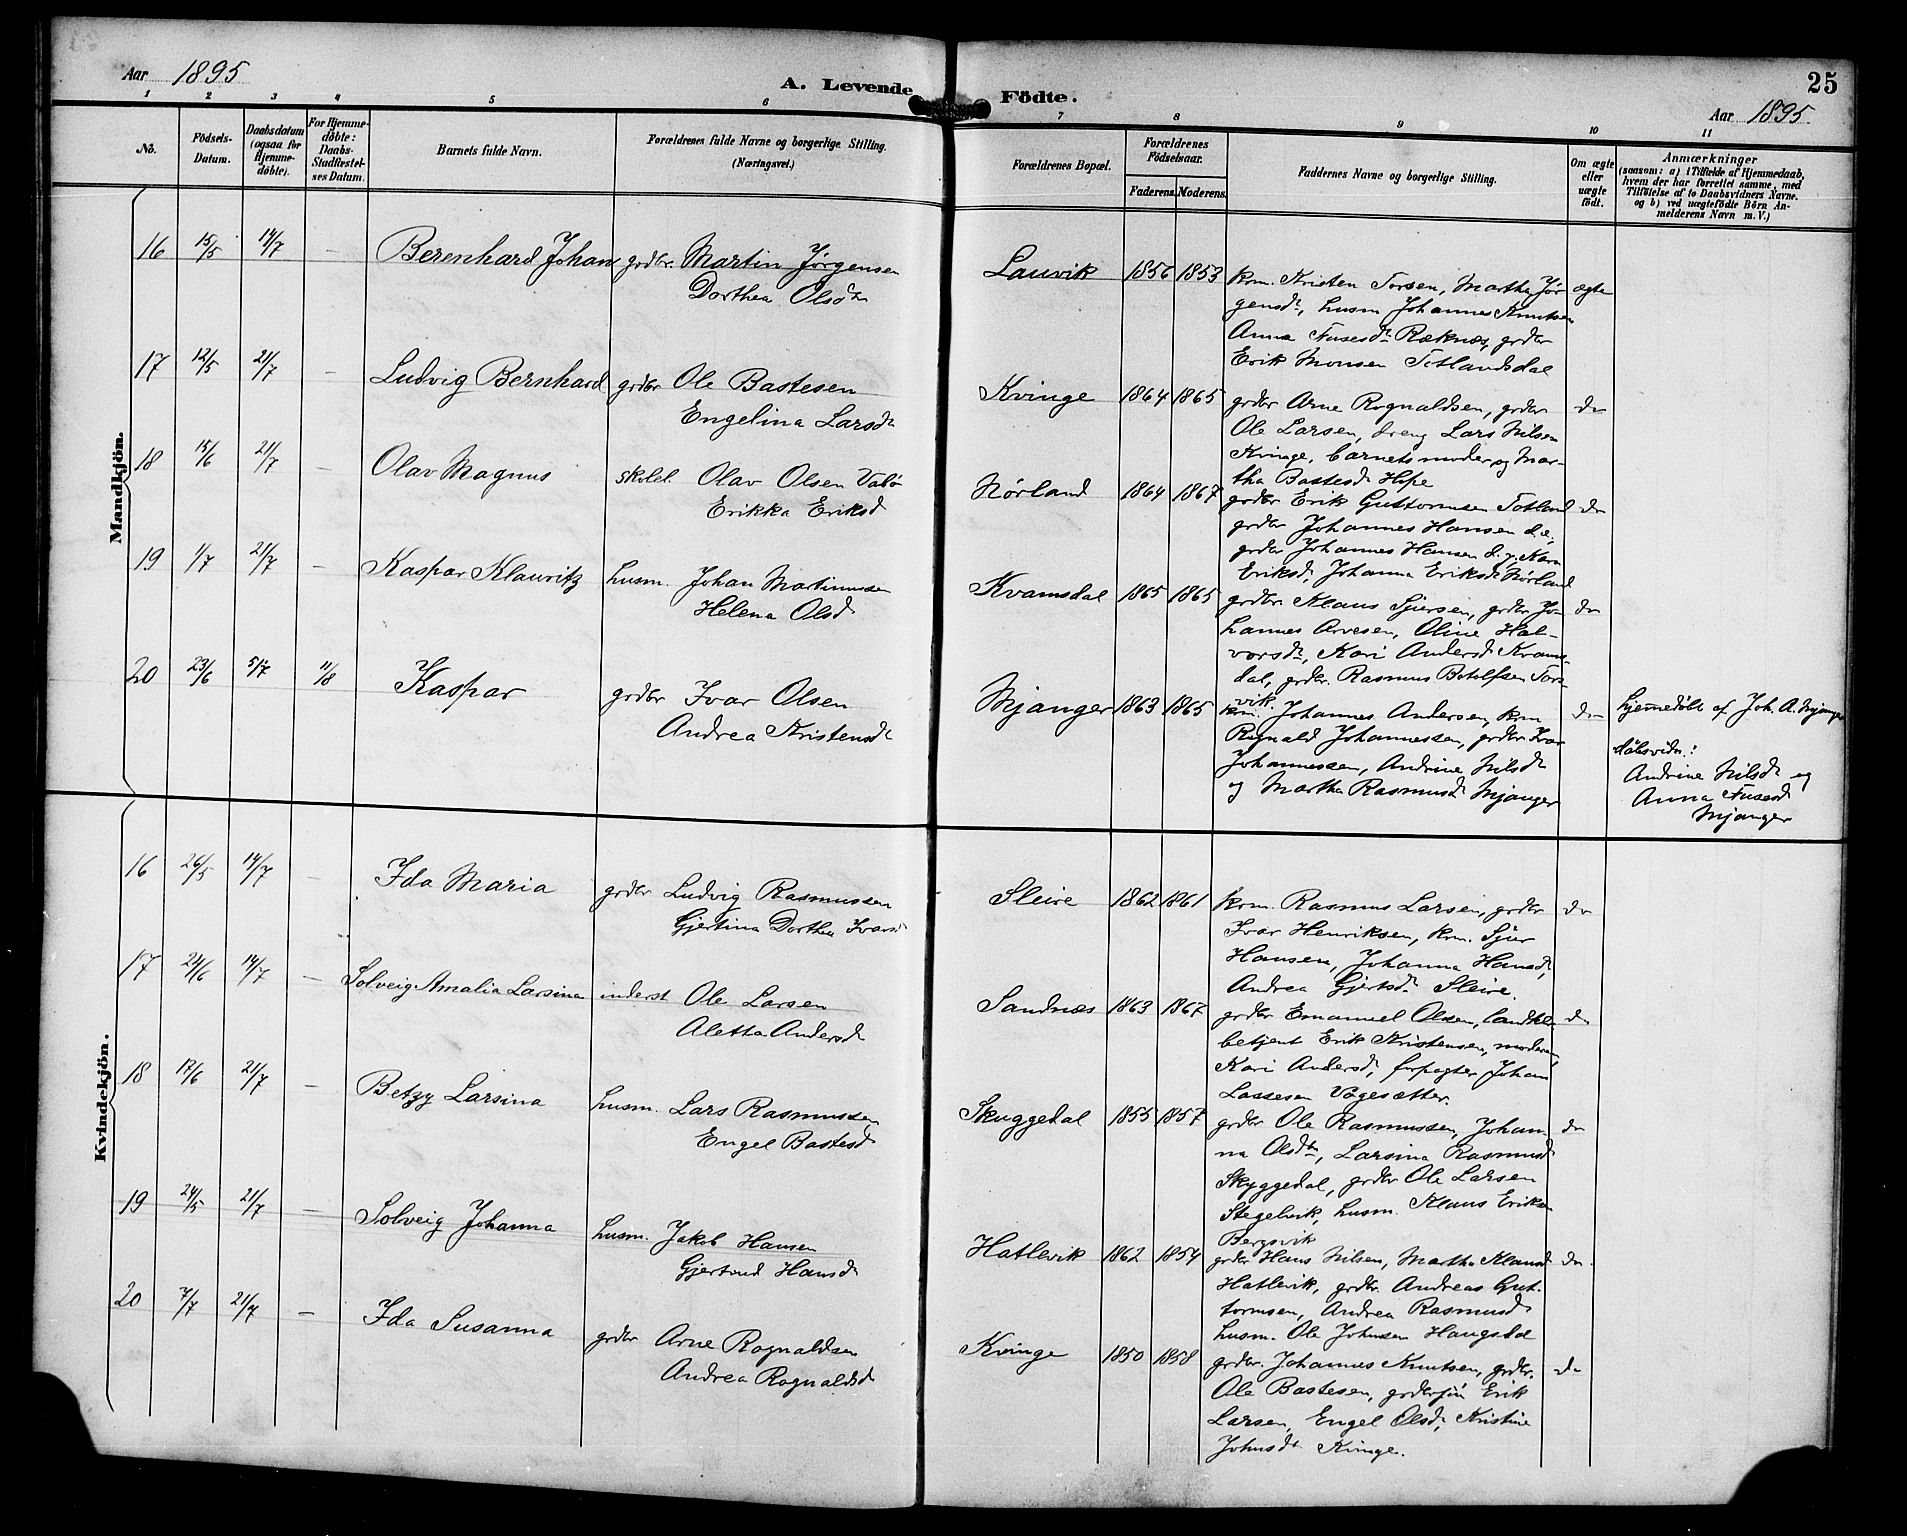 Aar 1895
A. Levende
Födte.
25
Aar 1895.
1 2 3 4 5 6 7 8 9 10 11
No.
Födsels-Datum.
Daabsdatum (ogsaa for Hjemme-döbte).
For Hjemme-döbte: Daabs-Stadfæstel-ses Datum.
Barnets fulde Navn.
Forældrenes fulde Navne og borgerlige Stilling. (Næringsvei.)
Forældrenes Bopæl.
Forældrenes Födselsaar.
Faderens. Moderens.
Faddernes Navne og borgerlige Stilling.
Om ægte eller uægte födt.
Anmærkninger
(saasom: a) i Tilfælde af Hjemmedaab, hvem der har forrettet samme, med Tilföielse af to Daabsvidners Navne. og b) ved uægtefödte Börn An-melderens Navn m. V.)
Mandkjön.
16 15/5 14/7 – Berenhard Johan grdbr. Martin Jørgensen
Dorthea Olsdn
Lauvik 1856 1853 krm. Kristen Torsen, Martha Jør- ægte
gensdn, husm Johannes Knutsen
Anna Fusesdn Ræknæs, grdbr
Erik Monsen Totlandsdal
17 12/5 21/7 – Ludvig Bernhard grdbr Ole Bastesen
Engelina Larsdn
Kvinge 1864 1865 grdbr Arne Rognaldsen, grdbr do
Ole Larsen, dreng Lars Nilsen
Kvinge, barnets moder og Mar-
tha Bastesdn Hope
18 15/6 21/7 – Olav Magnus skolel. Olav Olsen Valø
Erikka Eriksd
Nørland 1864 1867 grdbr Erik Guttormsen Totland do
grdbr Johannes Hansen d.æ.,
grdbr Johannes Hansen d.y. Kari
Eriksd, Johanna Eriksdn Nørland
19 1/7 21/7 – Kaspar Klauritz husm. Johan Martinusen
Helena Olsd
Kvamsdal 1865 1865 grdbr. Klaus Sjursen, grdbr Jo- do
hannes Arvesen, Oline Hal-
vorsdn, Kari Andersd Kvams-
dal, grdbr. Rasmus Botolfsen Tors-
vik.
20 23/6 5/7 11/8 Kaspar grdbr Ivar Olsen
Andrea Kristensdn
Mjanger 1863 1865 krm. Johannes Andersen, krm do
Rognald Johannessen, grdbr. Ivar
Johannessen, Andrine Nilsdn
og Martha Rasmusd Mjanger
hjemmedøbt af Joh. A. Mjanger
dåbsvidn:
Andrine Nilsdn og
Anna Fusesd
Mjanger
Kvindekjön.
16 26/5 14/7 – Ida Maria grdbr Ludvig Rasmussen
Gjertina Dorthea Ivarsd
Sleire 1862 1861 krm. Rasmus Larsen, grdbr do
Ivar Henriksen, krm. Sjur
Hansen, Johanna Hansd,
Andrea Gjertsdn Sleire.
17 24/6 14/7 – Solveig Amalia Larsina inderst Ole Larsen
Aletta Andersd
Sandnæs 1863 1867 grdbr Emanuel Olsen, landhl. do
betjent Erik Kristensen, moderen,
Kari Andersd, forpagter Johan
Lassesen Vågesætter.
18 17/6 21/7 – Betzy Larsina husm. Lars Rasmussen
Engel Bastesd
Skuggedal 1855 1857 grdbr Ole Rasmussen, Johan- do
na Olsdn, Larsina Rasmusd
Skyggedal, grdbr Ole Larsen
Stegelvik, husm. Klaus Eriksen
Bergsvik
19 24/5 21/7 – Solveig Johanna husm. Jakob Hansen
Gjertrud Hansdn
Hatlevik 1862 1854 grdbr Hans Nilsen, Martha Klausd do
Hatlevik, grdbr. Andreas Gut-
tormsen, Andrea Rasmusd
husm. Ole Johnsen Haugsdal
20 7/7 21/7 – Ida Susanna grdbr Arne Rognaldsen
Andrea Rognaldsd
Kvinge 1850 1858 grdbr. Johannes Knutsen, grdbr. do
Ole Bastesen, grdbrsøn Erik
Larsen, Engel Olsd, Kristine
Johnsdn Kvinge.